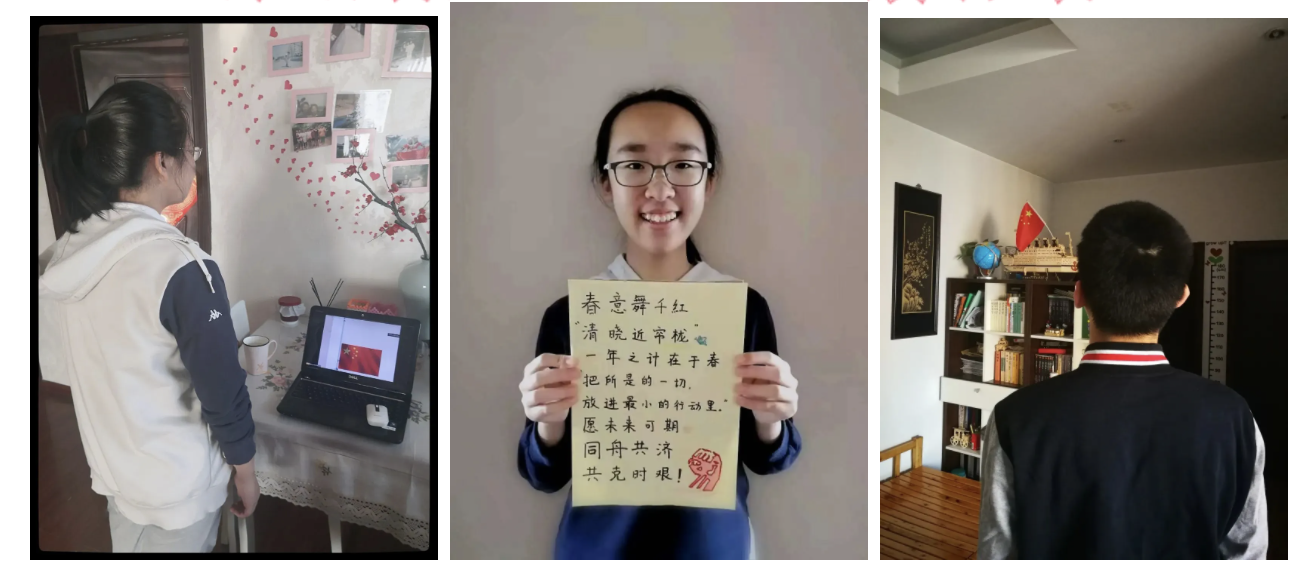 春意舞千红
"清晓近帘栊"
一年之计在于春
把所是的一切,
放进最小的行动里。"
愿未来可期
同舟共济
共克时艰!
DELL